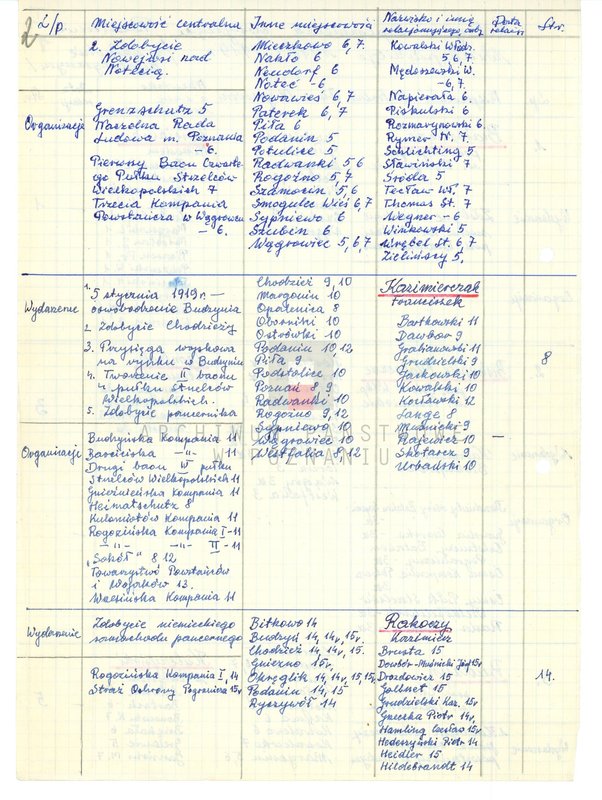 2
L/p.
Miejscowość centralna
Inne miejscowości
Nazwisko i imię
Data
relacji
Str.
2. Zdobycie
Nowejwsi nad
Notecią.
Mieczkowo 6, 7.
Nakło 6
Neudorf 6
Noteć - 6
Nowawieś 6, 7
Paterek 6, 7
Piła 6
Podanin 5
Potulice 5
Radwanki 5 6
Rogoźno 5, 7
Szamocin 5, 6
Smogulec Wieś 6, 7
Sypniewo 6
Szubin 6
Wągrowiec 5, 6, 7
Kowalski Włodz.
5, 6, 7.
Mędoszewski W.
- 6, 7.
Napierała 6.
Piskulski 6
Rozmarynowski 6.
Rymer W. 7.
Schlichting 5
Sławiński 7
Środa 5
Tocław Wł. 7
Thomas St. 7
Wegner - 6
Winkowski 5
Wrębel St. 6, 7
Zieliński 5,
Organizacje
Grenzschutz 5
Naczelna Rada
Ludowa m. Poznania
- 6.
Pierwszy Baon Czwarte-
go Pułku Strzelców
Wielkopolskich 7
Trzecia Kompania
Powstańcza w Wągrowcu
- 6.
Wydarzenie
1. 5 stycznia 1919 r. —
oswobodzenie Budzynia
2. Zdobycie Chodzieży
3. Przysięga wojskowa
na rynku w Budzyniu
4. Tworzenie II baonu
4 pułku strzelców
Wielkopolskich.
5. Zdobycie pancernika
Chodzież 9, 10
Margonin 10
Opalenica 8
Oborniki 10
Ostrówki 10
Podanin 10 12
Piła 9
Podstolice 10
Poznań 8 9
Radwanki 10
Rogoźno 9, 12
Sypniewo 10
Wągrowiec 10
Westfalia 8, 12
Kazimierczak
Franciszek
Bartkowski 11
Dawbor 9
Grabianowski 11
Grudzielski 9
Jackowski 10
Kowalski 10
Kozłowski 12
Lange 8
Muśnicki 9
Rajewicz 10
Skotarcz 9
Urbański 10
—
8
Organizacje
Budzyńska Kompania 11
Barcińska -"- 11
Drugi baon IV pułku
Strzelców Wielkopolskich 11
Gnieźnieńska Kompania 11
Heimatschutz 8
Kulomiotów Kompania 11
Rogozińska Kompania I - 11
-"- -"- II - 11
"Sokół" 8 12
Towarzystwo Powstańców
i Wojaków 13.
Wapińska Kompania 11
ARCHIWUM PAŃSTWOWE
W POZNANIU
Wydarzenie
Zdobycie niemieckiego
samochodu pancernego
Bitkowo 14
Budzyń 14, 14v, 15v.
Chodzież 14, 14v, 15.
Gniezno 15v,
Okręglik 14, 14v, 15, 15v.
Podanin 14, 15
Ryszywół 14
Rakoczy
Kazimierz
Brusta 15
Dowbór-Muśnicki Józef 15v
Drozdowicz 15
Gallnet 15
Grudzielski Kaz. 15v
Gruszka Piotr 14v,
Hamling Czesław 15v
Hederzyński Piotr 14
Heidler 15
Hildebrandt 14
14.
Rogozińska Kompania I, 14
Straż Ochrony Pogranicza 15v